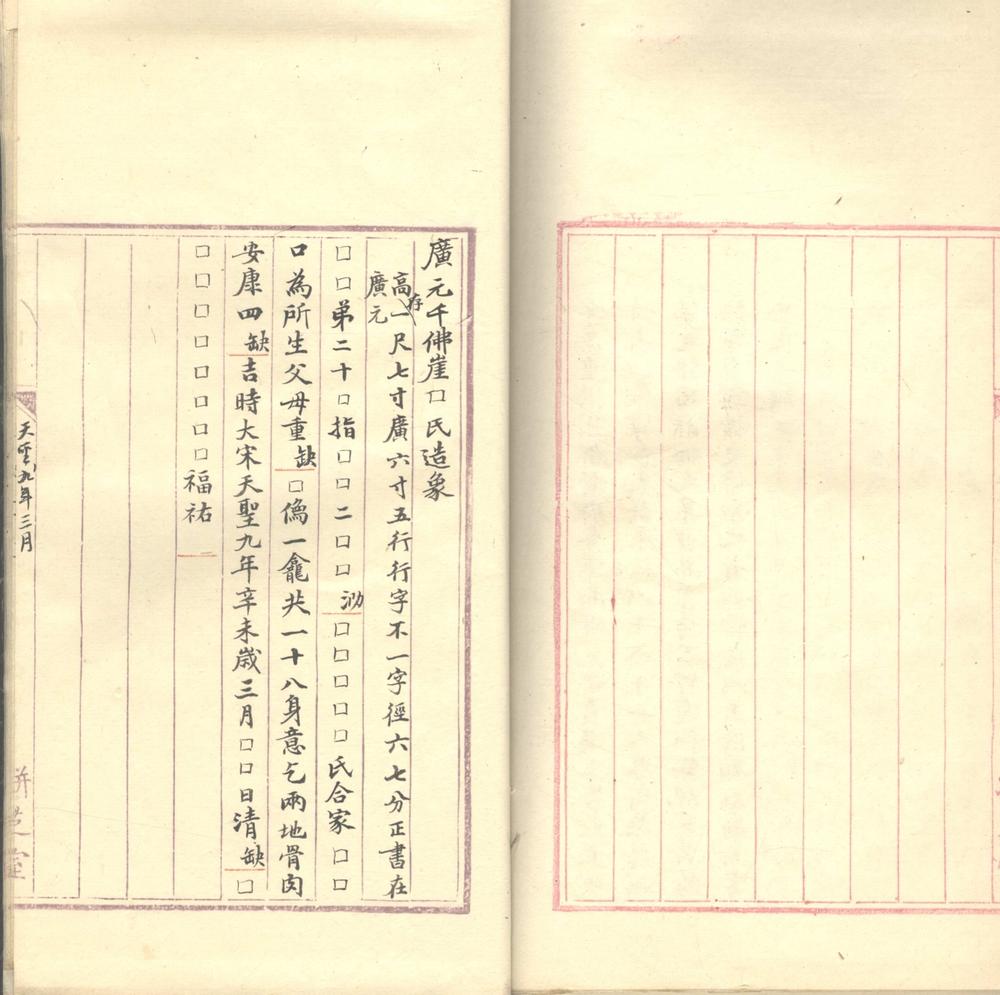 廣元千佛崖□氏造象
高存一尺七寸廣六寸五行行字不一字徑六七分正書在
廣元
□□弟二十□指□□二□□泐□□□□□氏合家□□
□為所生父母重缺□僞一龕共一十八身意乞兩地骨肉
安康四缺吉時大宋天聖九年辛未歲三月□□日清缺□
□□□□□□□□福祐
天聖九年三月